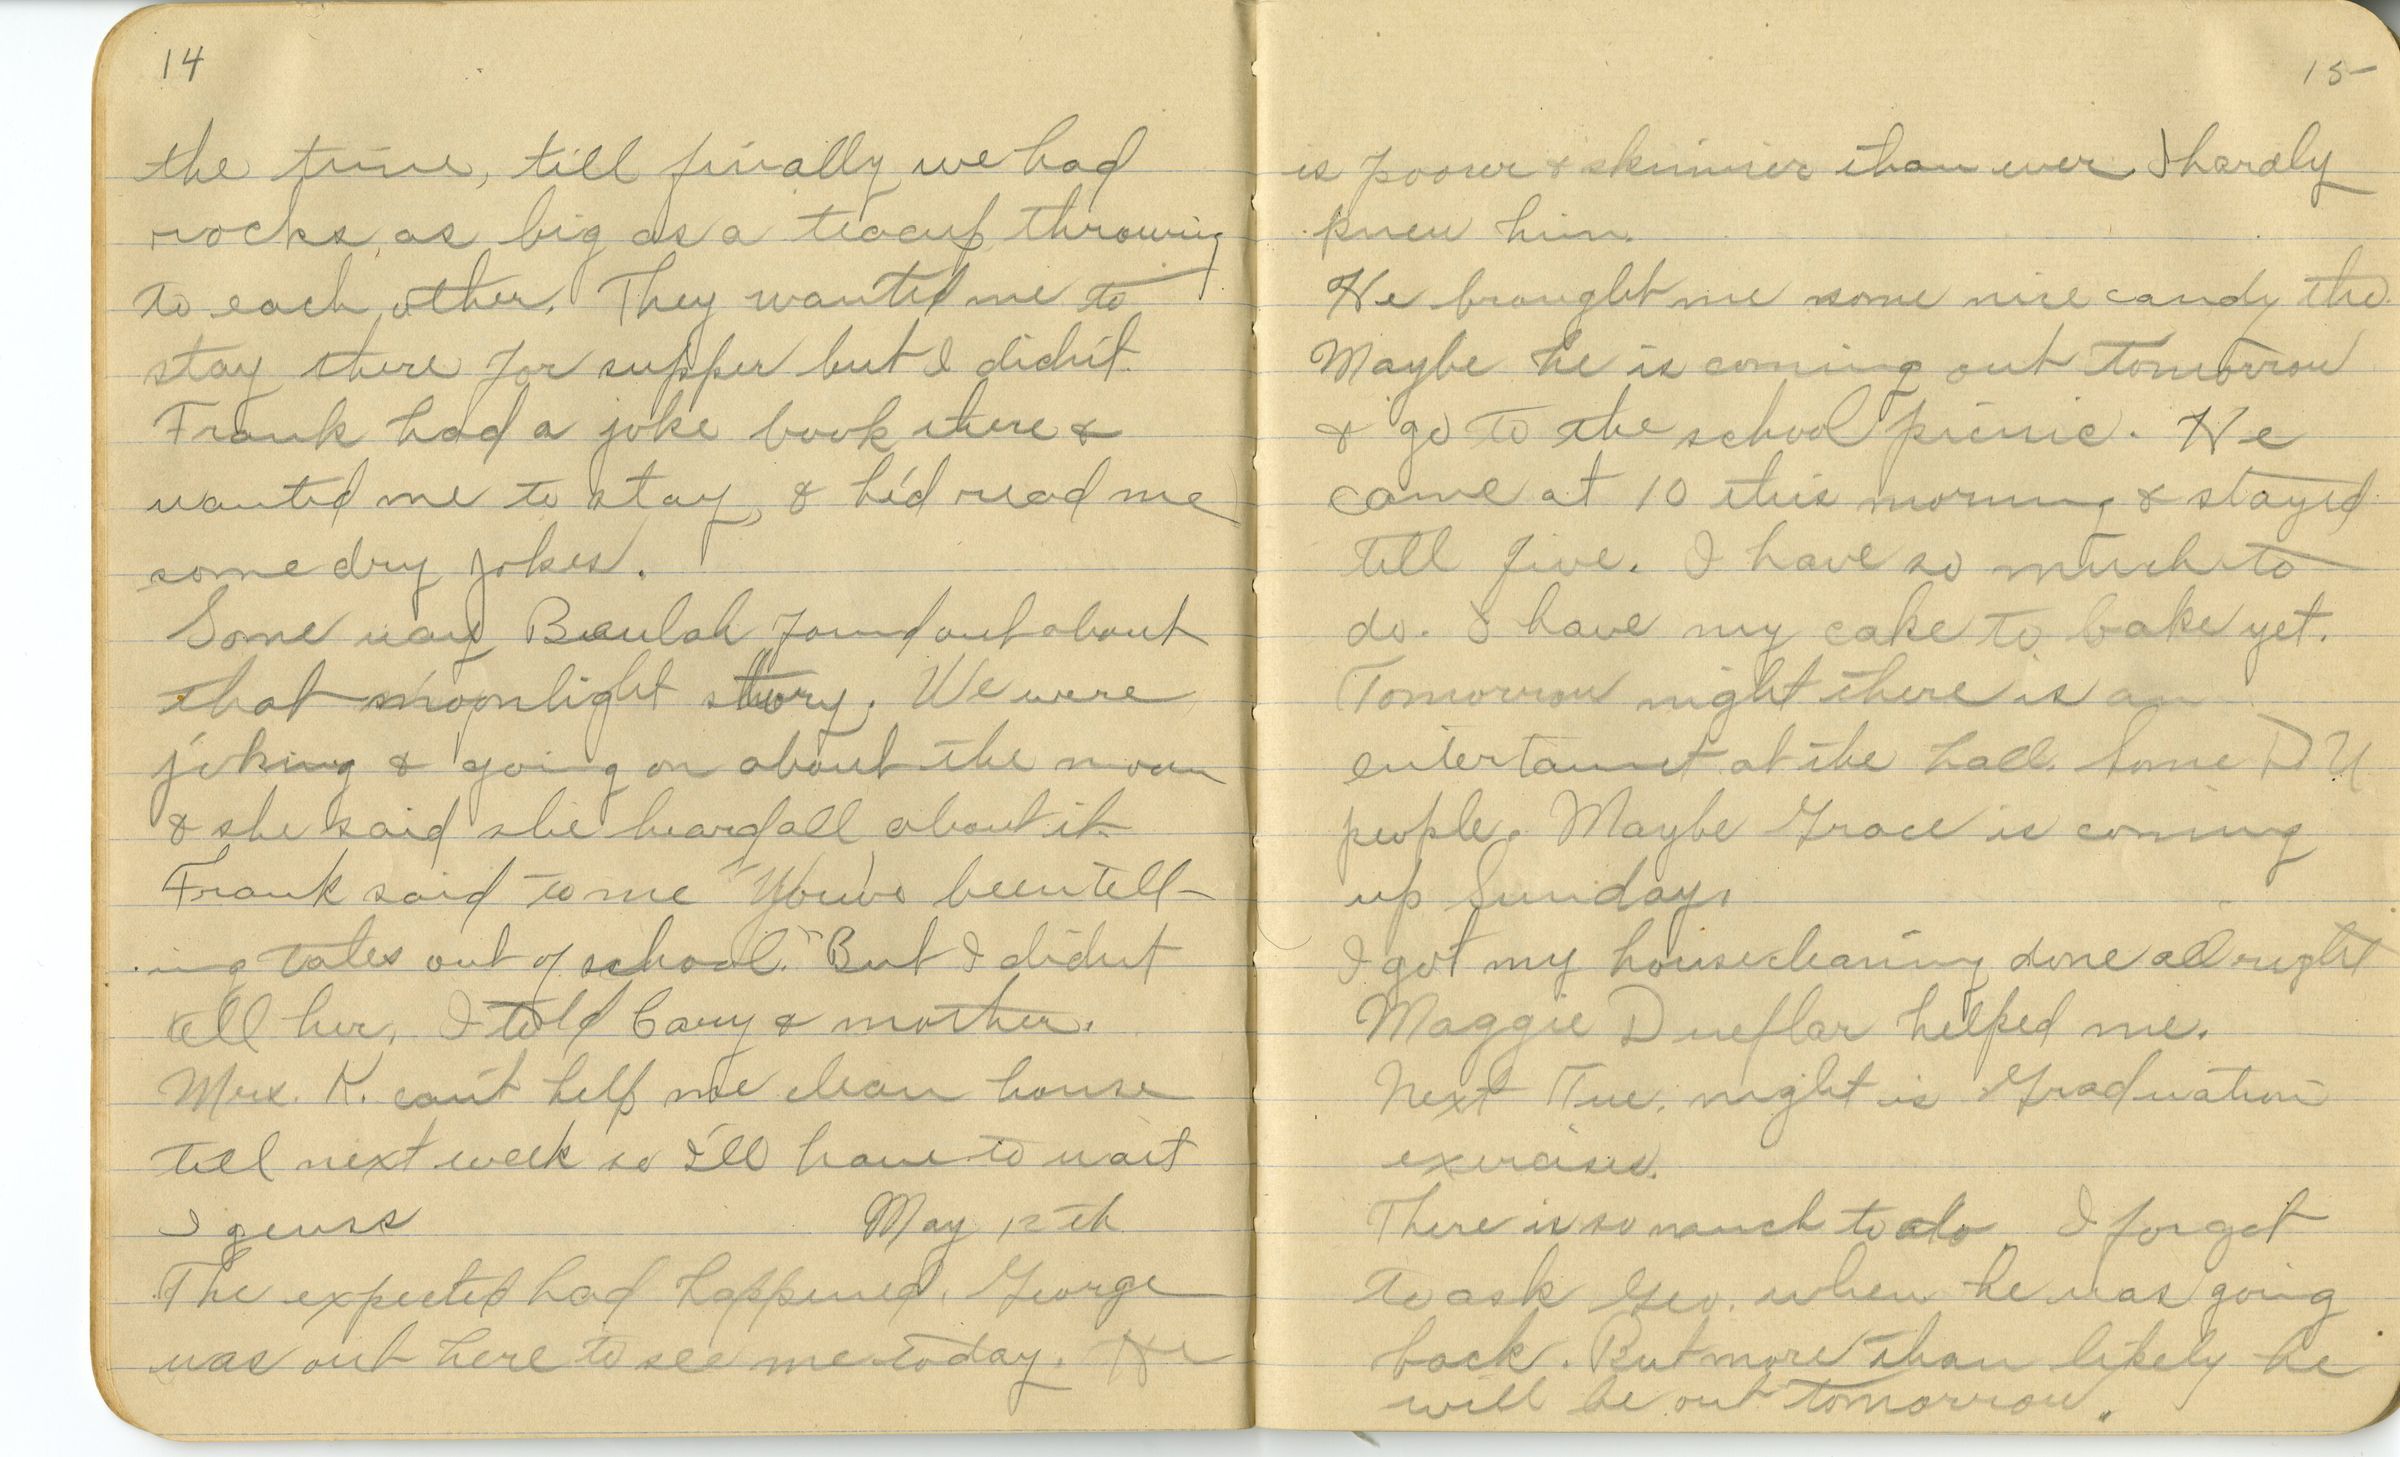 14
the time, till finally we had
rocks as big as a teacup throwing
to each other. They wanted me to
stay there for supper but I didn't.
Frank had a joke book there &
wanted me to stay, & he'd read me
some dry jokes.
Some way Beulah found out about
that moonlight story. We were
joking & going on about the moon
& she said she heard all about it.
Frank said to me "You've been tell-
ing tales out of school." But I didn't
tell her, I told Cary & mother.
Mrs. K. can't help me clean house
till next week so I'll have to wait
I geuss
May 12th
The expected had happened. George
was out here to see me today. He
15
is poorer & skinnier than ever I hardly
knew him.
He brought me some nice candy tho.
Maybe he is coming out tomorrow
& go to the school picnic. He
came at 10 this morning & stayed
till five. I have so much to
do. I have my cake to bake yet.
Tomorrow night there is an
entertaimet at the hall. Some D U
people. Maybe Grace is coming
up Sunday.
I got my housecleaning done all right
Maggie helped me.
Next Tue. night is Graduation
exercises.
There is so much to do I forget
to ask Geo. when he was going
back. But more than likely he
will be out tomorrow.